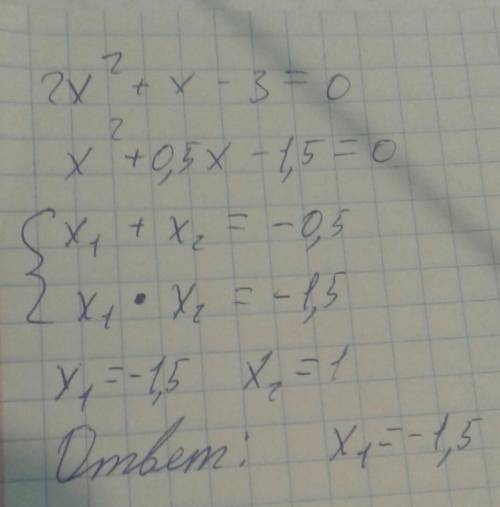 2x² + x - 3 = 0
x² + 0,5x - 1,5 = 0
{ x₁ + x₂ = -0,5
x₁ • x₂ = -1,5
x₁ = -1,5 x₂ = 1
Ответ: x₁ = -1,5